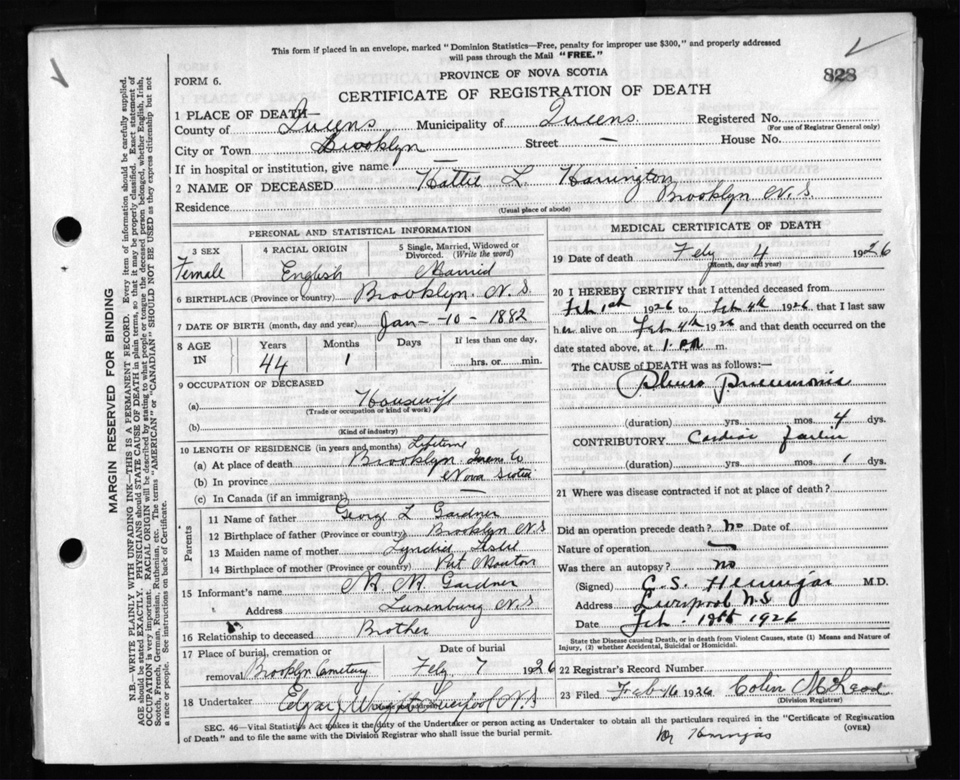 This form if placed in an envelope, marked "Dominion Statistics—Free, penalty for improper use $300," and properly addressed
will pass through the Mail "FREE."
FORM 6.
PROVINCE OF NOVA SCOTIA
828
CERTIFICATE OF REGISTRATION OF DEATH
1 PLACE OF DEATH—
County of Queens Municipality of Queens Registered No.
(For use of Registrar General only)
City or Town Brooklyn Street — House No.
If in hospital or institution, give name —
2 NAME OF DECEASED Hattie L. Harrington
Residence Brooklyn N.S.
(Usual place of abode)
PERSONAL AND STATISTICAL INFORMATION
3 SEX Female
4 RACIAL ORIGIN English
5 Single, Married, Widowed or Divorced. (Write the word) Married
6 BIRTHPLACE (Province or country) Brooklyn. N.S.
7 DATE OF BIRTH (month, day and year) Jan - 10 - 1882
8 AGE IN Years 44 Months 1 Days If less than one day, hrs. or min.
9 OCCUPATION OF DECEASED
(a) Housewife
(Trade or occupation or kind of work)
(b)
(Kind of industry)
10 LENGTH OF RESIDENCE (in years and months) Lifetime
(a) At place of death Brooklyn Queens Co
(b) In province Nova Scotia
(c) In Canada (if an immigrant) —
Parents
11 Name of father George L Gardner
12 Birthplace of father (Province or country) Brooklyn N S
13 Maiden name of mother Leslie
14 Birthplace of mother (Province or country) Port Mouton
15 Informant's name M. H. Gardner
Address Lunenburg N S
16 Relationship to deceased Brother
17 Place of burial, cremation or removal Brooklyn Cemetery
Date of burial Feby 7 1926
18 Undertaker Edgar J Wright Liverpool N.S
MEDICAL CERTIFICATE OF DEATH
19 Date of death Feby 4 1926
(Month, day and year)
20 I HEREBY CERTIFY that I attended deceased from
Feb 1st 1926 to Feb 4th 1926, that I last saw
her alive on Feb 4th 1926 and that death occurred on the
date stated above, at 1 PM m.
The CAUSE OF DEATH was as follows:—
Pleuro Pneumonia
(duration) yrs. mos. 4 dys.
CONTRIBUTORY Cardiac failure
(duration) yrs. mos. 1 dys.
21 Where was disease contracted if not at place of death?
Did an operation precede death? no Date of
Nature of operation —
Was there an autopsy? no
(Signed) C. S. Hennigar M.D.
Address Liverpool N.S
Date Feb. 1926
State the Disease causing Death, or in death from Violent Causes, state (1) Means and Nature of
Injury, (2) whether Accidental, Suicidal or Homicidal.
22 Registrar's Record Number
23 Filed Feb 16 1926 Colin McLeod
(Division Registrar)
SEC. 46—Vital Statistics Act makes it the duty of the Undertaker or person acting as Undertaker to obtain all the particulars required in the "Certificate of Registration
of Death" and to file the same with the Division Registrar who shall issue the burial permit.
(OVER)
Dr Hennigar
MARGIN RESERVED FOR BINDING
N.B.—WRITE PLAINLY WITH UNFADING INK—THIS IS A PERMANENT RECORD. Every item of information should be carefully supplied.
AGE should be stated EXACTLY. PHYSICIANS should STATE CAUSE OF DEATH in plain terms, so that it may be properly classified. Exact statement of
OCCUPATION is very important. RACIAL ORIGIN will be described by stating to what people or tongue the deceased person belonged, whether English, Irish,
Scotch, French, German, Russian, Ruthenian, etc. The terms "AMERICAN" or "CANADIAN" SHOULD NOT BE USED as they express citizenship but not
a race or people. See instructions on back of Certificate.